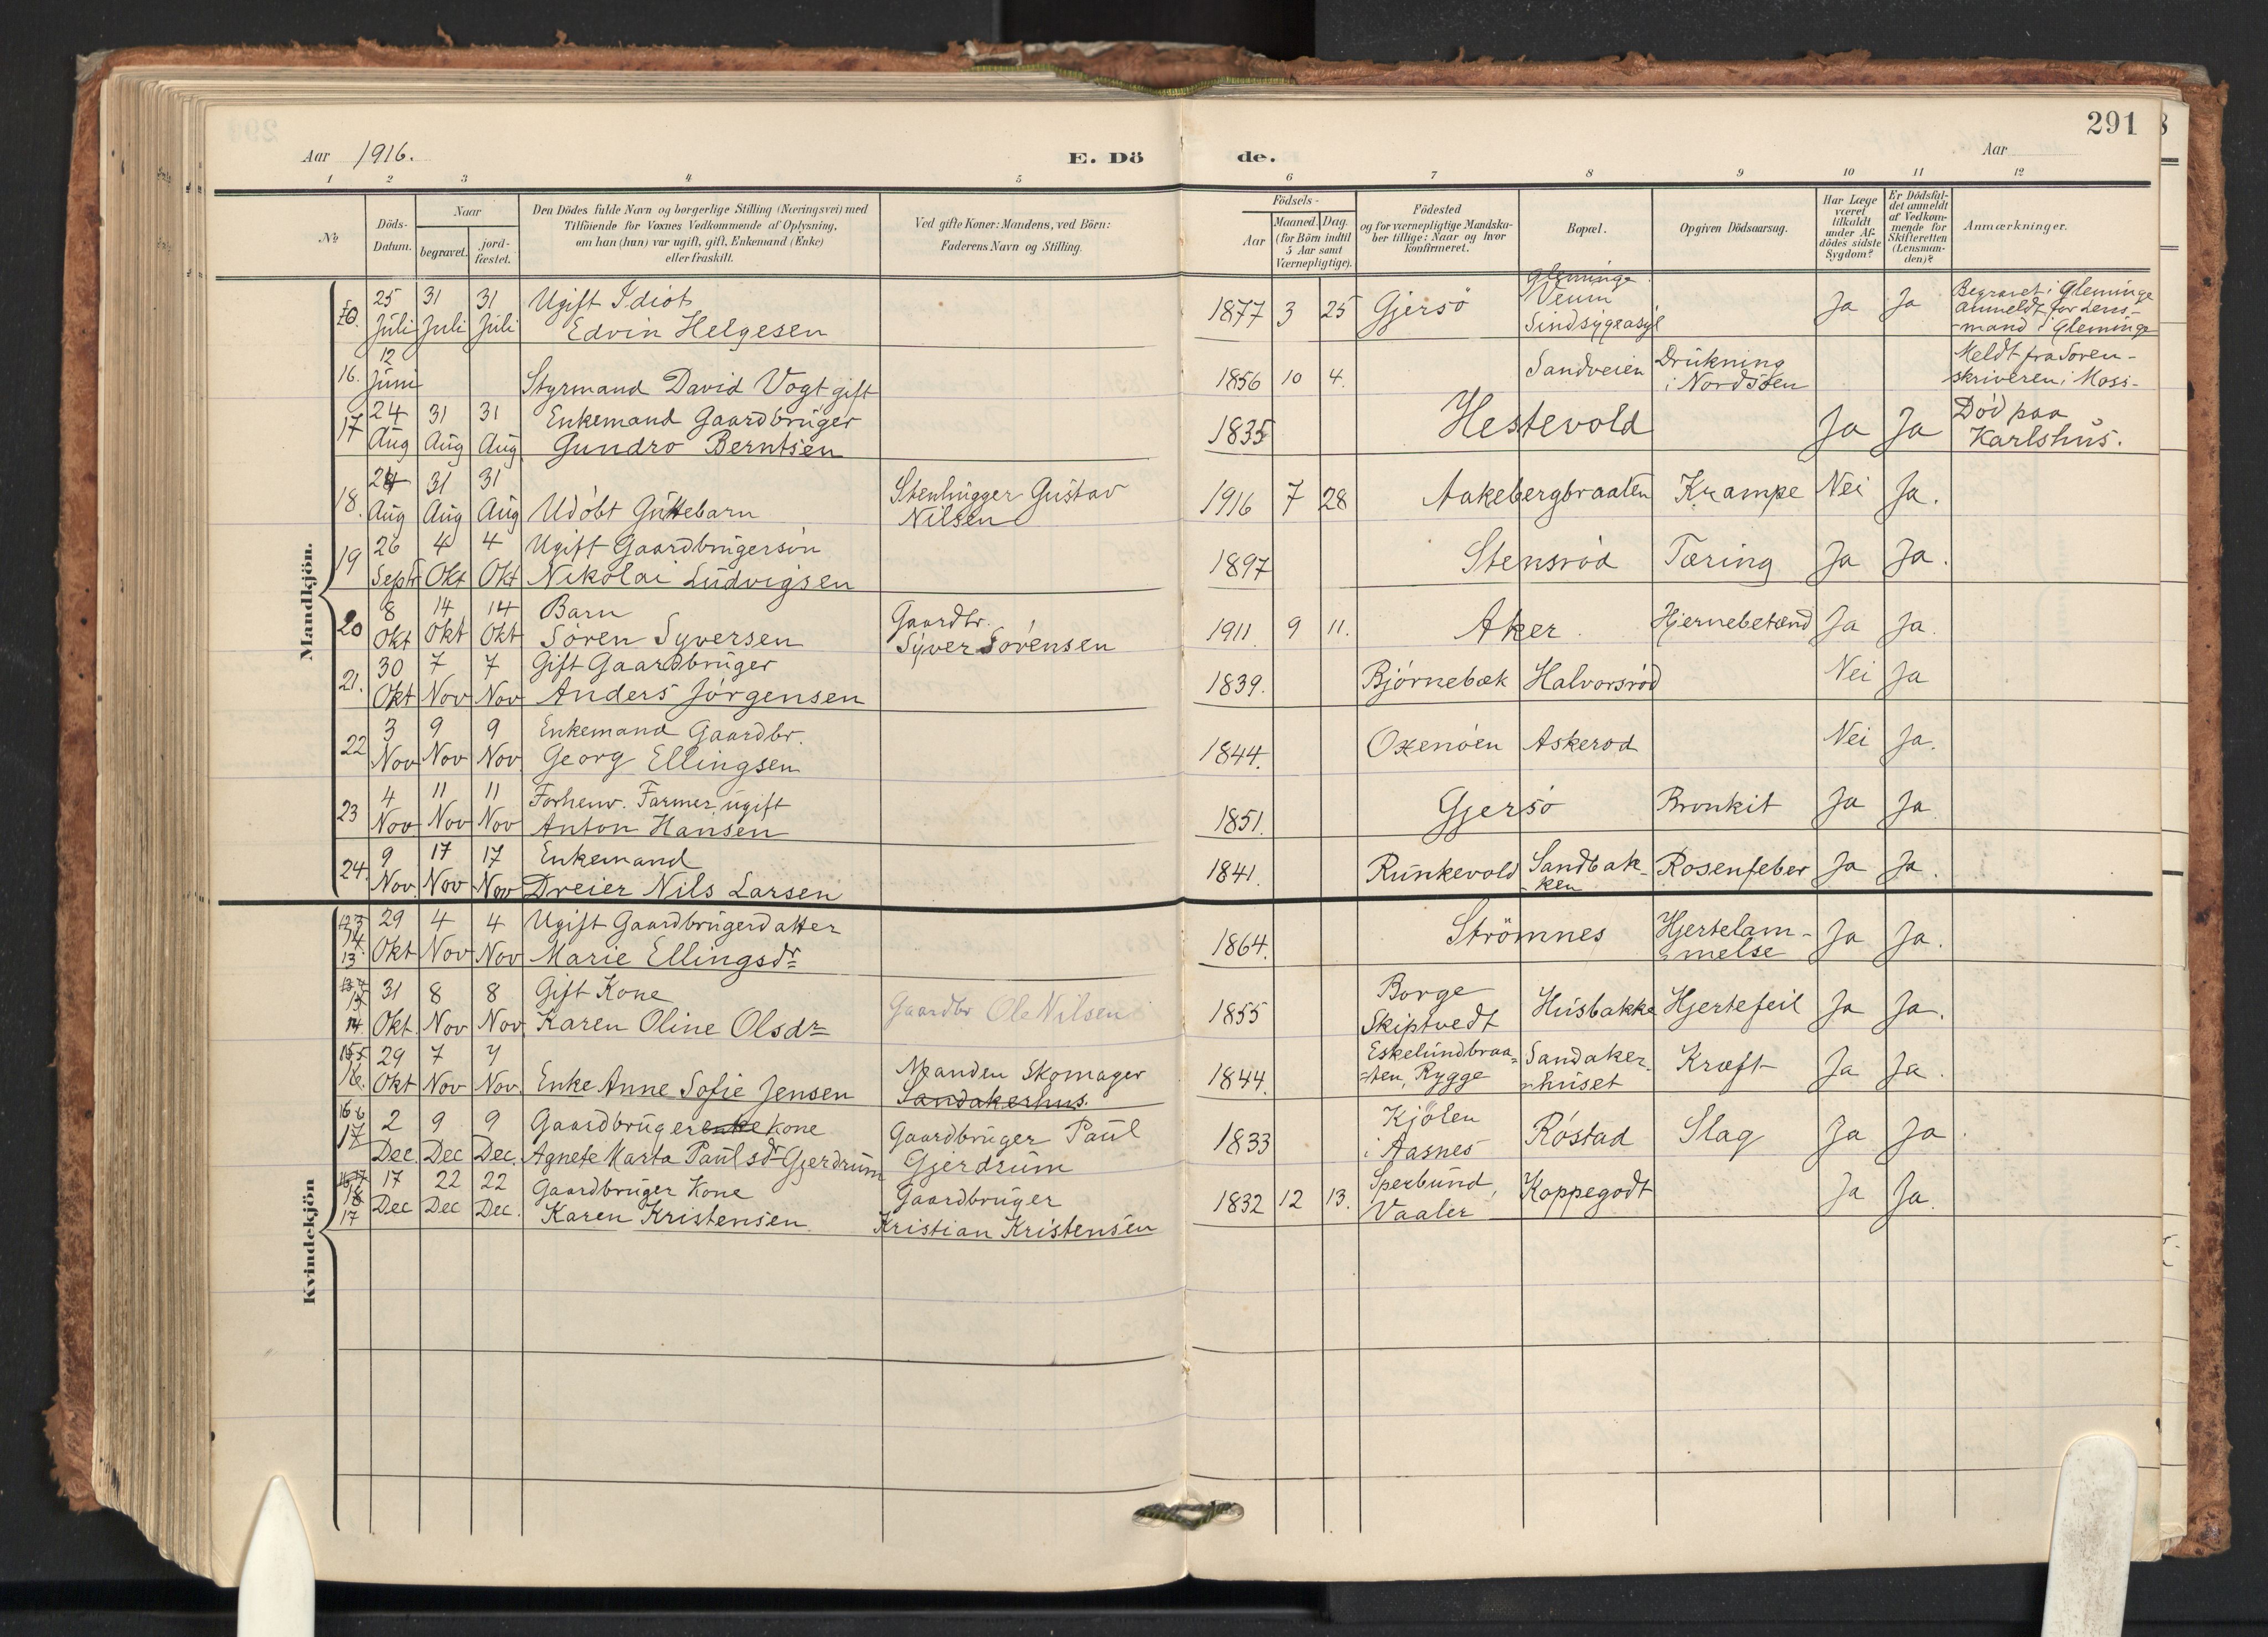 291
Aar 1916. E. Dö de. Aar
1 2 3 4 5 6 7 8 9 10 11 12
No
Döds-Datum.
Naar
begravet.
jord-fæstet.
Den Dödes fulde Navn og borgerlige Stilling (Næringsvei) med
Tilföiende for Voxnes Vedkommende af Oplysning,
om han (hun) var ugift, gift, Enkemand (Enke)
eller fraskilt.
Ved gifte Koner: Mandens, ved Börn:
Faderens Navn og Stilling.
Födsels-
Aar
Maaned. Dag.
(for Börn indtil
5 Aar samt
Værnepligtige).
Födested
og for værnepligtige Mandska-
ber tillige: Naar og hvor
konfirmeret.
Bopæl.
Opgiven Dödsaarsag.
Har Læge
været
tilkaldt
under Af-
dödes sidste
Sygdom?
Er Dödsfal-
det anmeldt
af Vedkom-
mende for
Skifteretten
(Lensman-
den)?
Anmærkninger.
Mandkjön.
25 Juli 31 Juli 31 Juli Ugift Idiot
Edvin Helgesen
1877 3 25 Gjersö Glemminge
Veum
Sindsygeasyl Ja Ja Begravet i Gleminge
Anmeldt for Lens-
-mand i Gleminge
16. 12 Juni Styrmand David Vogt gift 1856 10 4. Sandveien Drukning
i Nordsöen Meldt fra Soren-
skriveren i Moss-
17 24 Aug 31 Aug 31 Aug Enkemand Gaardbruger
Gundro Berntsen 1835 Hestevold Ja Ja Död paa
Karlshus.
18. 24 Aug 31 Aug 31 Aug Udöbt Guttebarn Stenhugger Gustav
Nilsen 1916 7 28 Aakebergbraaten Krampe Nei Ja.
19 26 Sept 4 Okt 4 Okt Ugift Gaardbrugersön
Nikolai Ludvigsen 1897 Stensröd Tæring Ja Ja.
20 8 Okt 14 Okt 14 Okt Barn
Sören Syversen Gaardbr.
Syver Sörensen 1911 9 11. Aker Hjernebetænd Ja Ja.
21. 30 Okt 7 Nov 7 Nov Gift Gaardbruger
Anders Jörgensen 1839. Björnebæk Halvorsröd Nei Ja
22 3 Nov 9 Nov 9 Nov Enkemand Gaardbr.
Georg Ellingsen 1844. Oxenöen Askeröd Nei Ja.
23 4 Nov 11 Nov 11 Nov Forhenv. Farmer, ugift
Anton Hansen 1851. Gjersö Bronkit Ja Ja
24. 9 Nov. 17 Nov 17 Nov Enkemand
Dreier Nils Larsen 1841. Runkevold Sandbak-
-ken Rosenfeber Ja Ja.
Kvindekjön
14 13 29 Okt 4 Nov 4 Nov Ugift Gaardbrugerdatter
Marie Ellingsdr 1864. Strömnes Hjertelam-
melse Ja Ja.
15 14 31 Okt. 8 Nov 8 Nov Gift Kone
Karen Oline Olsdr Gaardbr Ole Nilsen 1855 Borge
Skiptvedt Husbakke Hjertefeil Ja Ja.
15 16. 29 Okt 7 Nov 7 Nov. Enke Anne Sofie Jensen Manden Skomager
Sandakerhus. 1844. Eskelundbraa-
-ten, Rygge Sandaker-
huset Kræft Ja Ja.
16 17 2 Dec. 9 Dec 9 Dec. Gaardbruger enke kone
Agnete Marta Paulsdr Gjerdrum Gaardbruger Paul
Gjerdrum 1833 Kjölen
i Aasnes Röstad Slag Ja Ja.
18 17 17 Dec 22 Dec 22 Dec. Gaardbruger Kone
Karen Kristensen. Gaardbruger
Kristian Kristensen 1832 12 13. Sperbund,
Vaaler Koppegodt Ja Ja.